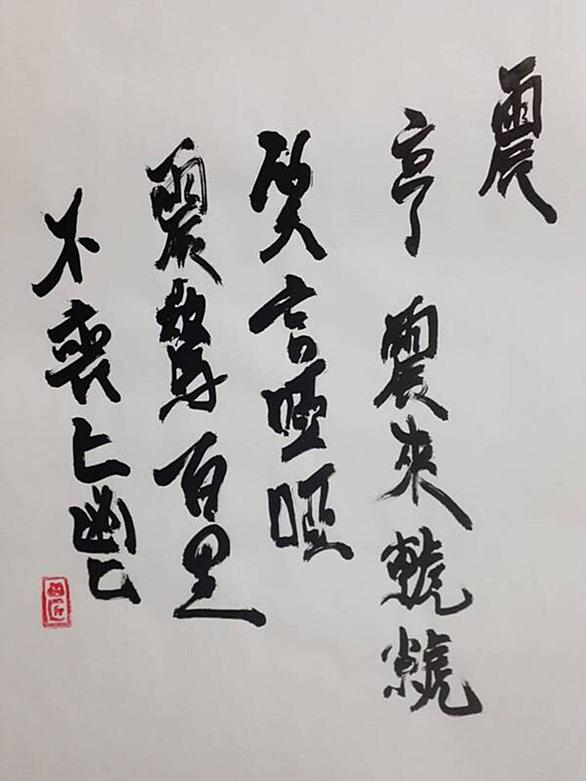 震
亨 震來虩虩
笑言啞啞
震驚百里
不喪匕鬯